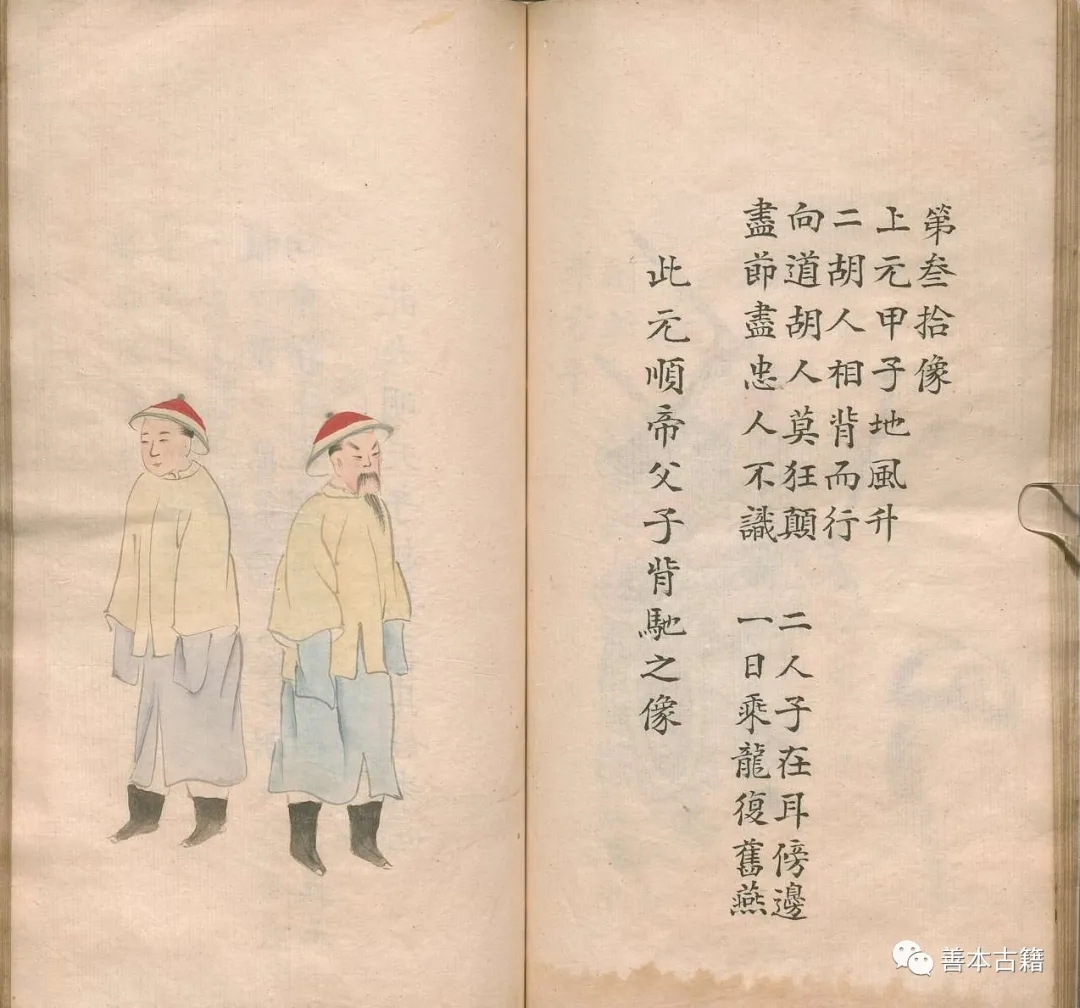 第叁拾像
上元甲子地風升
二胡人相背而行
向道胡人莫狂顛 二人子在耳傍邊
盡節盡忠人不識 一日乘龍復舊燕
此元順帝父子背馳之像
善本古籍